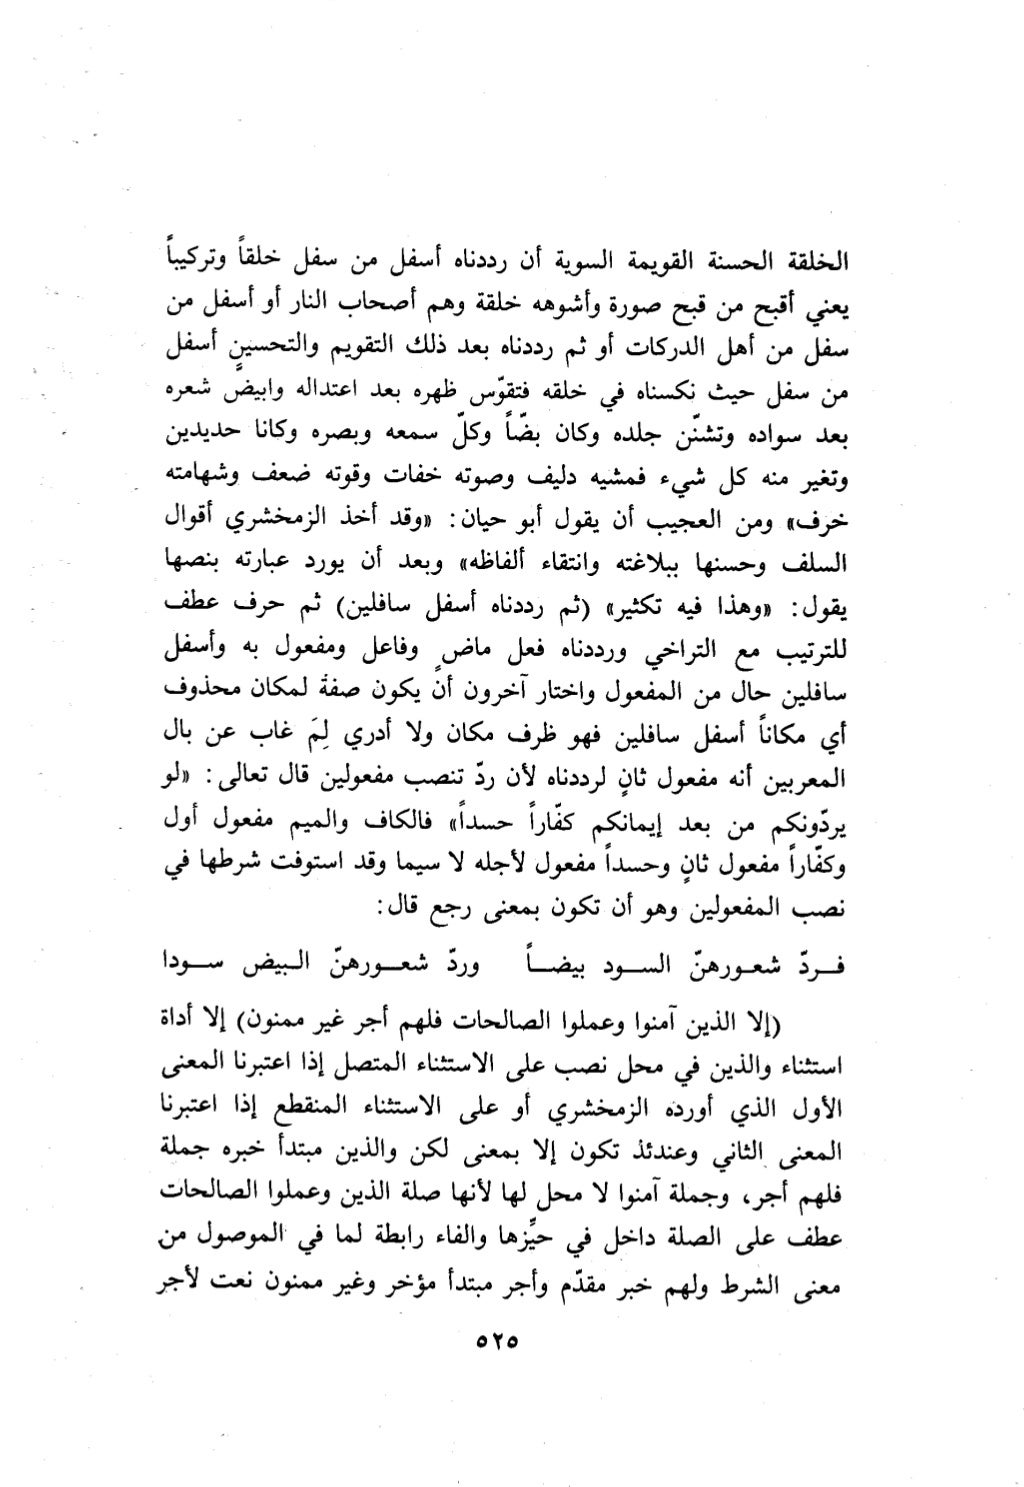 الخلقة الحسنة القويمة السوية أن رددناه أسفل من سفل خلقاً وتركيباً
يعني أقبح من قبح صورة وأشوهه خلقة وهم أصحاب النار أو أسفل من
سفل من أهل الدركات أو ثم رددناه بعد ذلك التقويم والتحسين أسفل
من سفل حيث نكسناه في خلقه فتقوّس ظهره بعد اعتداله وابيضّ شعره
بعد سواده وتشنّن جلده وكان بضّاً وكلّ سمعه وبصره وكانا حديدين
وتغير منه كل شيء فمشيه دليف وصوته خفات وقوته ضعف وشهامته
خرف» ومن العجيب أن يقول أبو حيان: «وقد أخذ الزمخشري أقوال
السلف وحسنها ببلاغته وانتقاء ألفاظه» وبعد أن يورد عبارته بنصها
يقول: «وهذا فيه تكثير» (ثم رددناه أسفل سافلين) ثم حرف عطف
للترتيب مع التراخي ورددناه فعل ماضٍ وفاعل ومفعول به وأسفل
سافلين حال من المفعول واختار آخرون أن يكون صفة لمكان محذوف
أي مكاناً أسفل سافلين فهو ظرف مكان ولا أدري لِمَ غاب عن بال
المعربين أنه مفعول ثانٍ لرددناه لأن ردّ تنصب مفعولين قال تعالى: «لو
يردّونكم من بعد إيمانكم كفّاراً حسداً» فالكاف والميم مفعول أول
وكفّاراً مفعول ثانٍ وحسداً مفعول لأجله لا سيما وقد استوفت شرطها في
نصب المفعولين وهو أن تكون بمعنى رجع قال:
فـردّ شعـورهنّ السـود بيضـاً وردّ شعـورهنّ الـبيض سـودا
(إلا الذين آمنوا وعملوا الصالحات فلهم أجر غير ممنون) إلا أداة
استثناء والذين في محل نصب على الاستثناء المتصل إذا اعتبرنا المعنى
الأول الذي أورده الزمخشري أو على الاستثناء المنقطع إذا اعتبرنا
المعنى الثاني وعندئذ تكون إلا بمعنى لكن والذين مبتدأ خبره جملة
فلهم أجر، وجملة آمنوا لا محل لها لأنها صلة الذين وعملوا الصالحات
عطف على الصلة داخل في حيِّزها والفاء رابطة لما في الموصول من
معنى الشرط ولهم خبر مقدّم وأجر مبتدأ مؤخر وغير ممنون نعت لأجر
٥٢٥